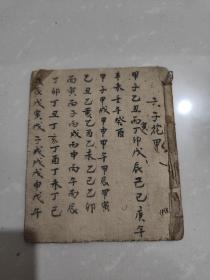 六子花甲
甲子乙丑丙寅丁卯戊辰己巳庚午
辛未壬申癸酉
甲子甲戌甲申甲午甲辰甲寅
乙丑乙亥乙酉乙未乙巳乙卯
丙寅丙子丙戌丙申丙午丙辰
丁卯丁丑丁亥丁酉丁未丁巳
戊辰戊寅戊子戊戌戊申戊午